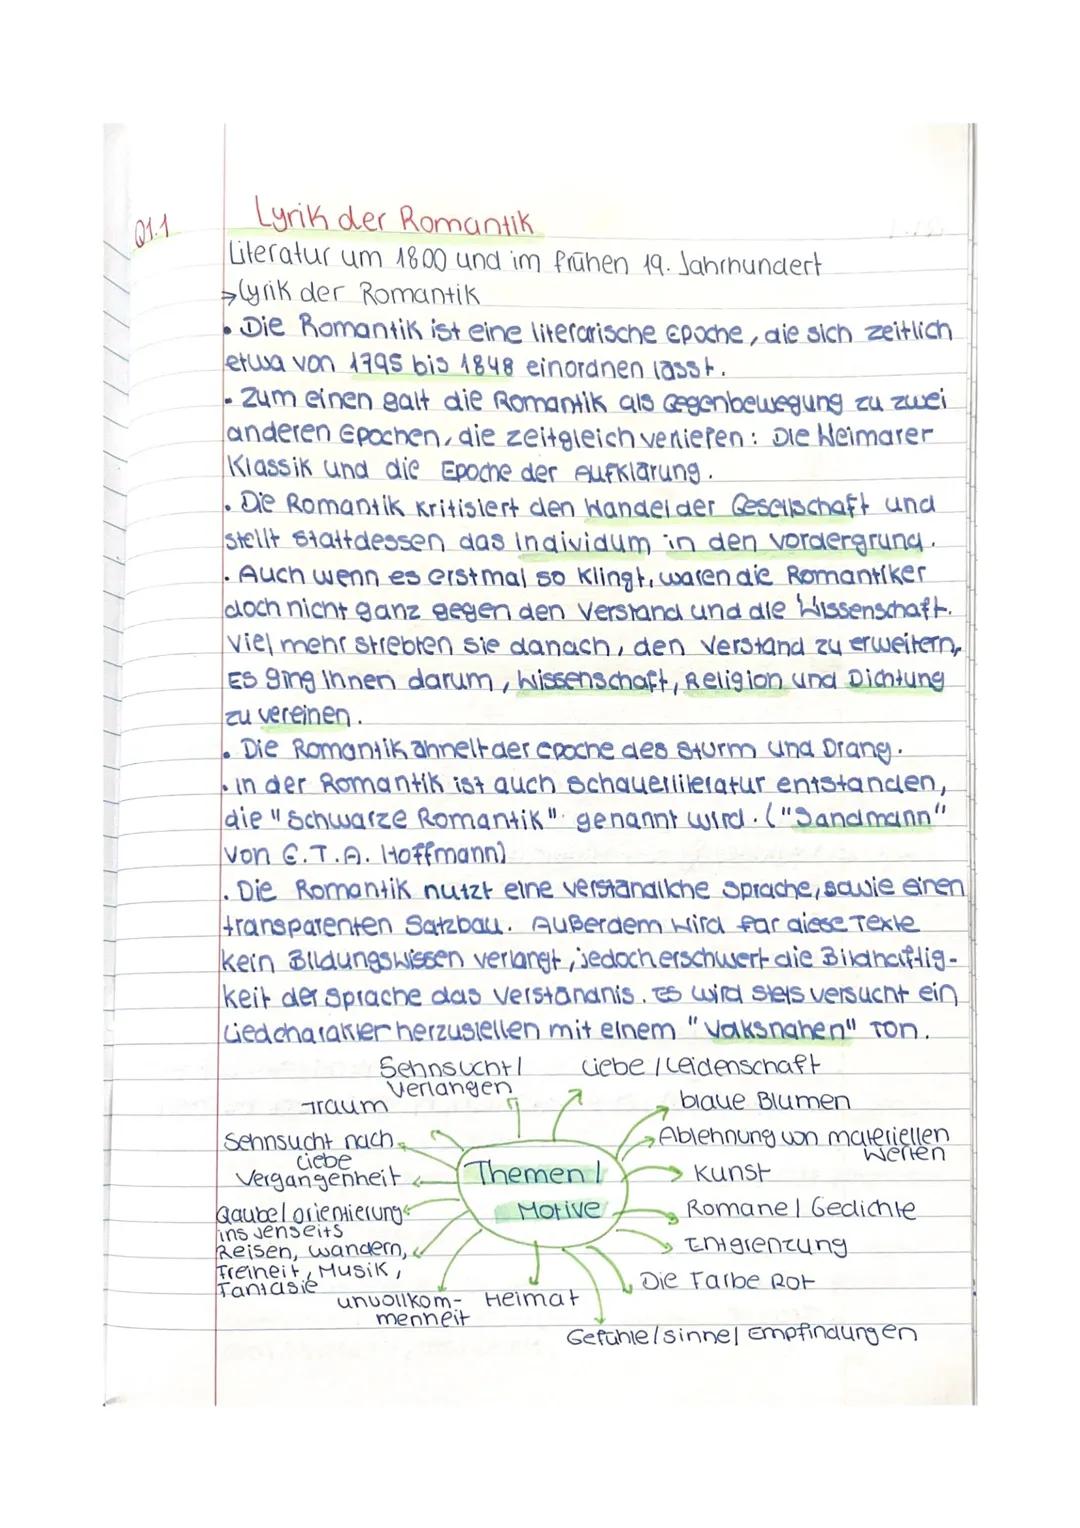 Q1.1
Lyrik der Romantik
Literatur um 1800 und im frühen 19. Jahrhundert
→ Lyrik der Romantik
• Die Romantik ist eine literarische Epoche, die sich zeitlich
etwa von 1795 bis 1848 einordnen lässt.
• Zum einen galt die Romantik als Gegenbewegung zu zwei
anderen Epochen, die zeitgleich verliefen: Die Weimarer
Klassik und die Epoche der Aufklärung.
• Die Romantik kritisiert den Wandel der Gesellschaft und
stellt stattdessen das Individum in den Vordergrund.
• Auch wenn es erstmal so klingt, waren die Romantiker
doch nicht ganz gegen den Verstand und die Wissenschaft.
Viel mehr strebten sie danach, den Verstand zu erweitern,
Es ging ihnen darum, Wissenschaft, Religion und Dichtung
zu vereinen.
• Die Romantik ähnelt der Epoche des Sturm und Drang.
• in der Romantik ist auch Schauerliteratur entstanden,
die "Schwarze Romantik" genannt wird. ("Sandmann"
von E.T.A. Hoffmann)
• Die Romantik nutzt eine verständliche Sprache, sowie einen
transparenten Satzbau. Außerdem wird für diese Texte
kein Bildungswissen verlangt, jedoch erschwert die Bildhaftig-
keit der Sprache das Verständnis. Es wird stets versucht ein
Liedcharakter herzustellen mit einem "Volksnahen" Ton.
Sehnsucht/
Verlangen
Liebe / Leidenschaft
Traum
blaue Blumen
Sehnsucht nach
Liebe
Ablehnung von materiellen
Werten
Vergangenheit
Themen /
Motive
Kunst
Gaube/orientierung
ins Jenseits
Romane / Gedichte
Reisen, wandern,
Freiheit, Musik,
Fantasie
Entgrenzung
Die Farbe Rot
unvollkom-
menheit
Heimat
Gefühle/sinne/ Empfindungen